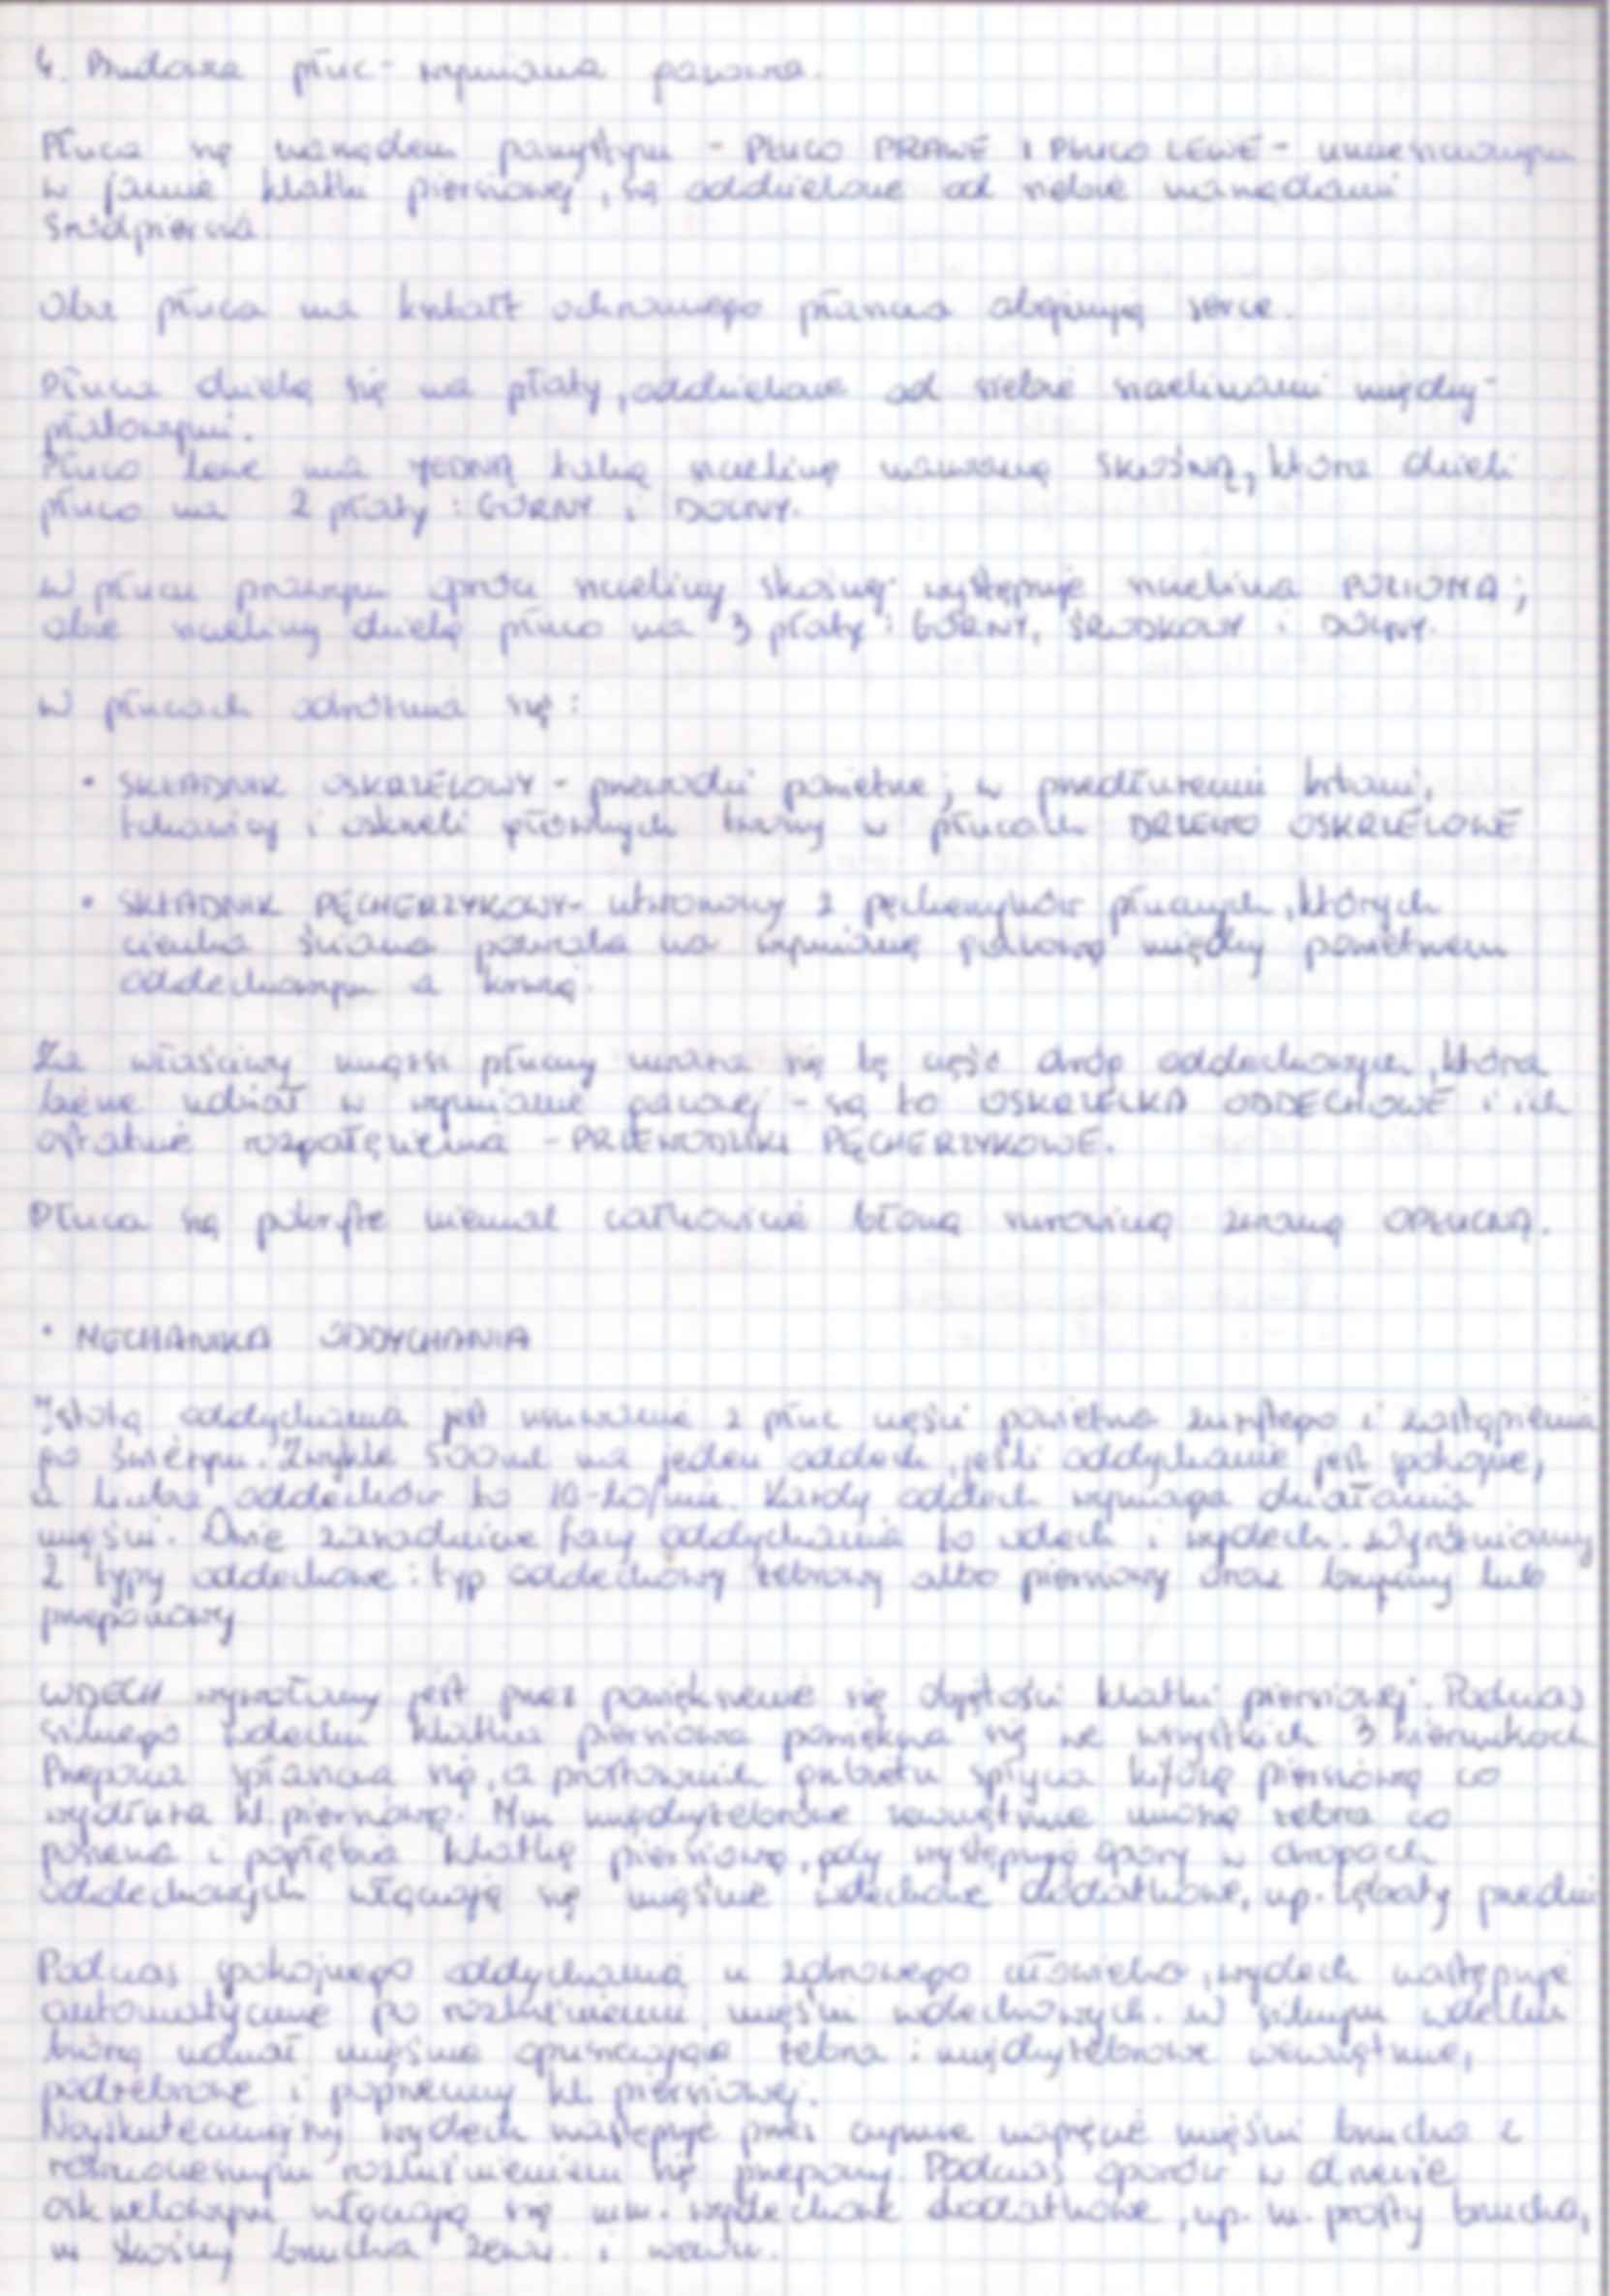 4. Budowa płuc - wymiana gazowa.
Płuca są narządem parzystym - PŁUCO PRAWE I PŁUCO LEWE - umieszczonym
w jamie klatki piersiowej, są oddzielone od siebie narządami
śródpiersia.
Oba płuca ma kształt ochronnego płaszcza obejmują serce.
Płuca dzielą się na płaty, oddzielone od siebie szczelinami między-
płatowymi.
Płuco lewe ma JEDNĄ taką szczelinę nazwaną SKOŚNĄ, która dzieli
płuco na 2 płaty: GÓRNY i DOLNY.
W płucu prawym oprócz szczeliny skośnej występuje szczelina POZIOMA;
obie szczeliny dzielą płuco na 3 płaty: GÓRNY, ŚRODKOWY i DOLNY.
W płucach odróżnia się:
• SKŁADNIK OSKRZELOWY - przewodzi powietrze; w przedłużeniu krtani,
tchawicy i oskrzeli głównych tworzy w płucach DRZEWO OSKRZELOWE
• SKŁADNIK PĘCHERZYKOWY - utworzony z pęcherzyków płucnych, których
cienka ściana pozwala na wymianę gazową między powietrzem
oddechowym a krwią.
Za właściwy miąższ płucny uważa się tę część dróg oddechowych, która
bierze udział w wymianie gazowej - są to OSKRZELKA ODDECHOWE i ich
ostatnie rozgałęzienia - PRZEWODZIKI PĘCHERZYKOWE.
Płuca są pokryte niemal całkowicie błoną surowiczą zwaną OPŁUCNĄ.
• MECHANIKA ODDYCHANIA
Istotą oddychania jest usuwanie z płuc części powietrza zużytego i zastąpienia
go świeżym. Zwykle 500ml na jeden oddech, jeśli oddychanie jest spokojne,
a liczba oddechów to /min. Każdy oddech wymaga działania
mięśni. Dwie zasadnicze fazy oddychania to wdech i wydech. Wyróżniamy
2 typy oddechowe: typ oddechowy żebrowy albo piersiowy oraz brzuszny lub
przeponowy
WDECH wywołany jest przez powiększenie się objętości klatki piersiowej. Podczas
silnego wdechu klatka piersiowa powiększa się we wszystkich 3 kierunkach
Przepona spłaszcza się, a prostownik grzbietu spłyca kifozę piersiową co
wydłuża kl. piersiową. Mm międzyżebrowe zewnętrzne unoszą żebra co
poszerza i pogłębia klatkę piersiową, gdy występują opory w drogach
oddechowych włączają się mięśnie wdechowe dodatkowe, np. zębaty przedni
Podczas spokojnego oddychania u zdrowego człowieka, wydech następuje
automatycznie po rozluźnieniu mięśni wdechowych. W silnym wdechu
biorą udział mięśnie opuszczające żebra: międzyżebrowe wewnętrzne,
podżebrowe i poprzeczny kl. piersiowej.
Najskuteczniejszy wydech następuje przez czynne napięcie mięśni brzucha z
równoczesnym rozluźnieniem się przepony Podczas oporów w drzewie
oskrzelowym włączają się mm. wydechowe dodatkowe, np. m. prosty brzucha,
m skośny brzucha zewn. i wewn.